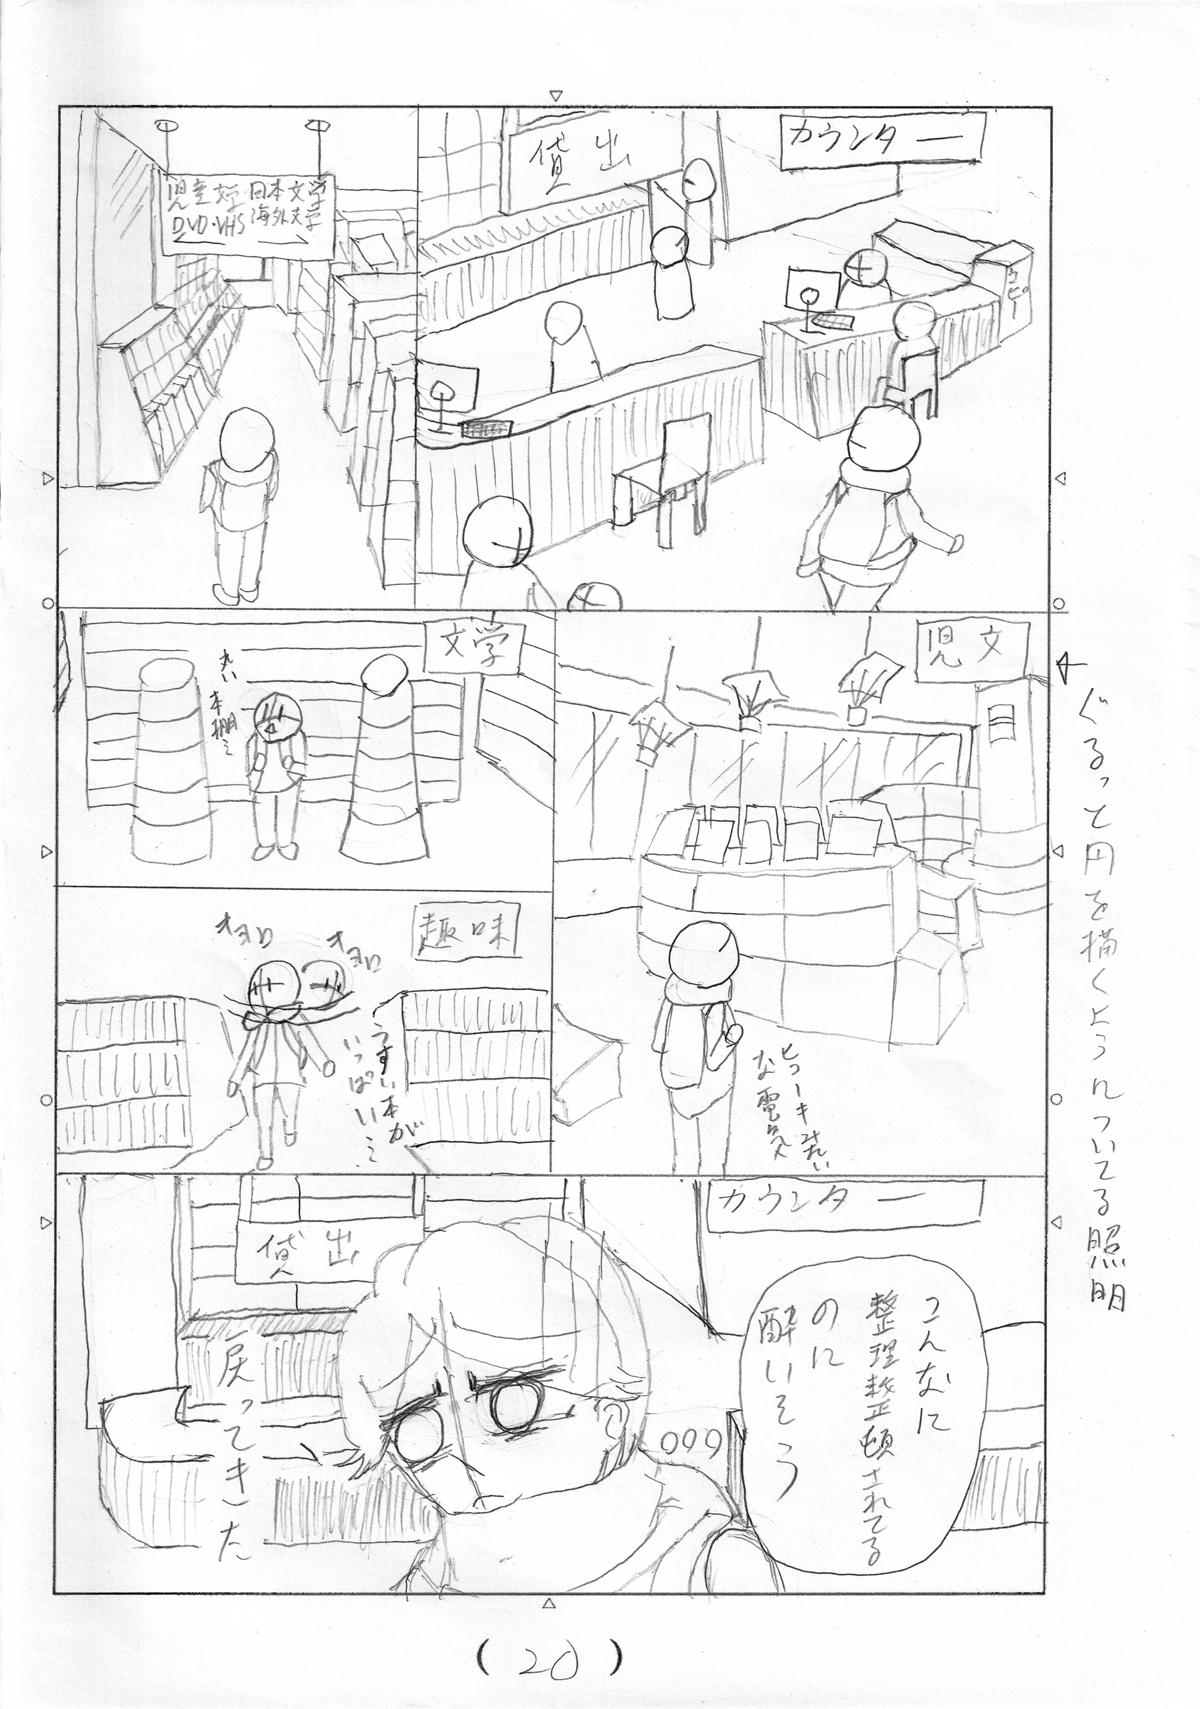 カウンター
貸出
コピー
児童文学・日本文学
DVD・VHS 海外文学
児文
ヒコーキみたい
な電気
文学
丸い
本棚…
趣味
オヨロ
オヨロ
うすい本が
いっぱい…
カウンター
貸出
こんなに
整理整頓されてる
のに
酔いそう
戻ってきた
ぐるっと円を描くようについてる照明
(20)